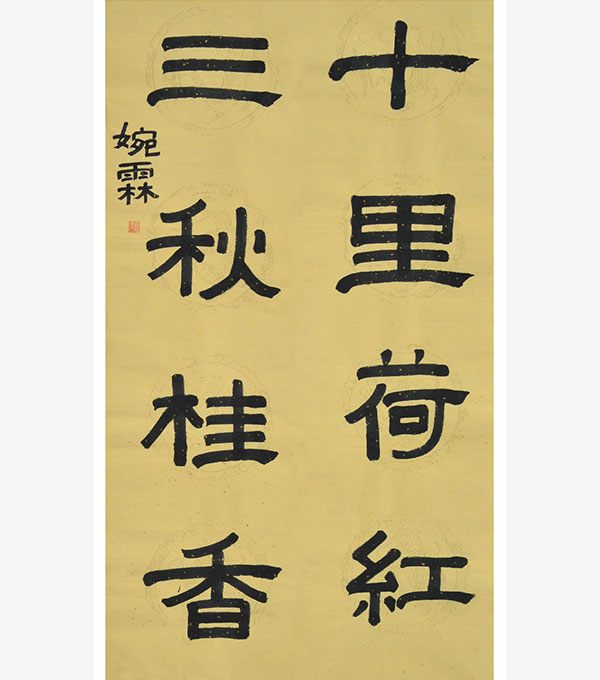 十里荷紅
三秋桂香
婉霖